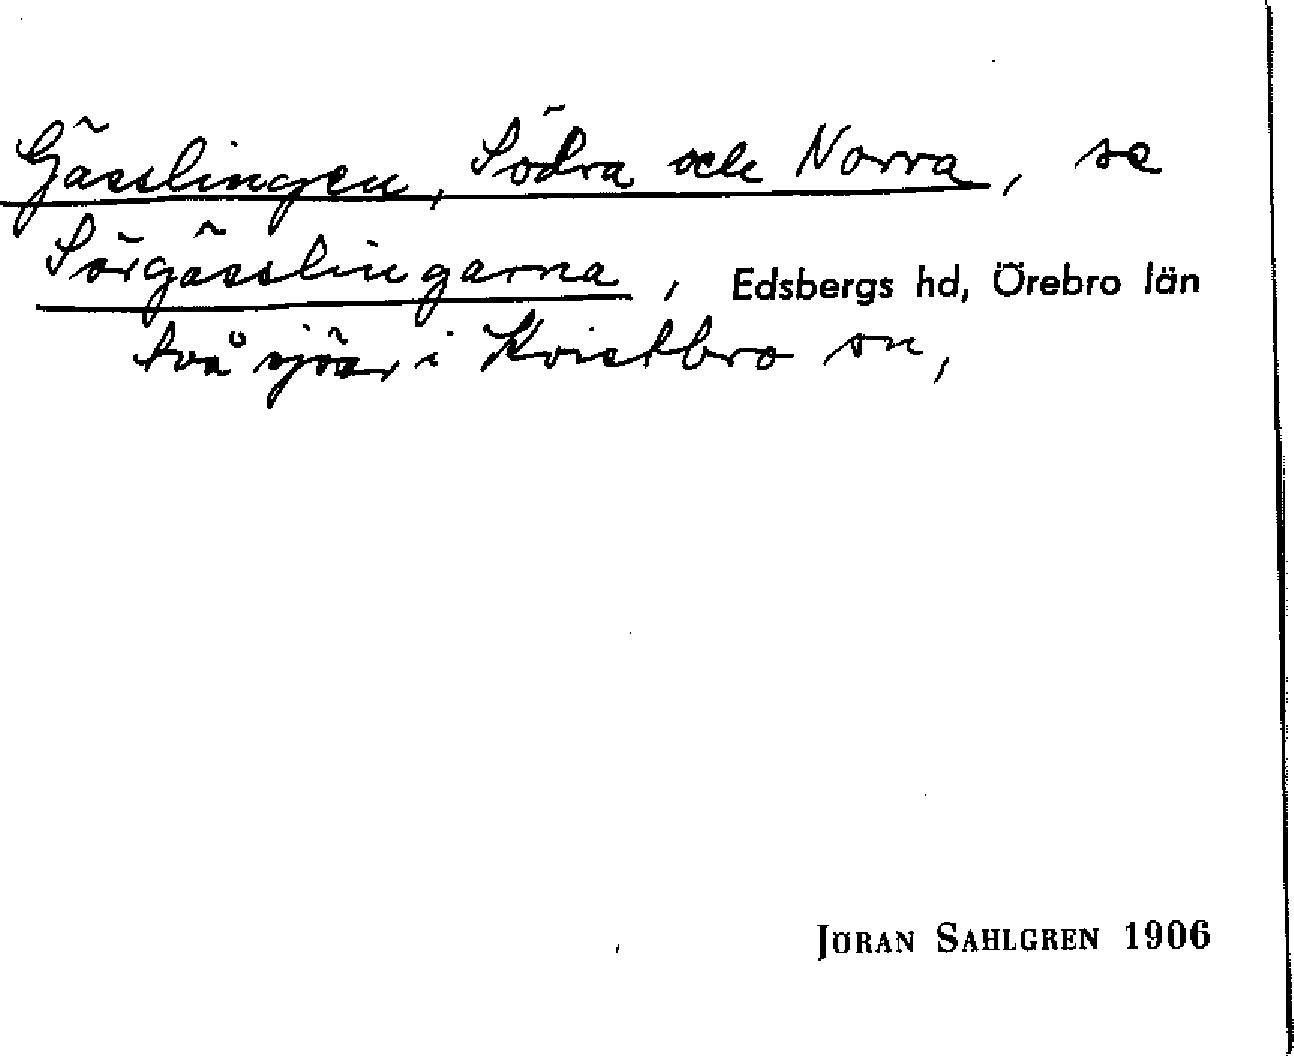 Gässlingen, Södra och Norra, se
Sörgässlingarna, Edsbergs hd, Örebro län
två sjöar i Kvistbro sn,
JÖRAN SAHLGREN 1906